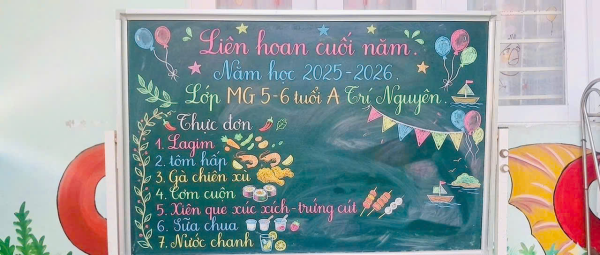 Liên hoan cuối năm.
Năm học 2025-2026.
Lớp MG 5-6 tuổi A Trí Nguyên.
Thực đơn
1. Lagim
2. tôm hấp
3. Gà chiên xù
4. Cơm cuôn
5. Xiên que xúc xích-trứng cút
6. Sữa chua
7. Nước chanh